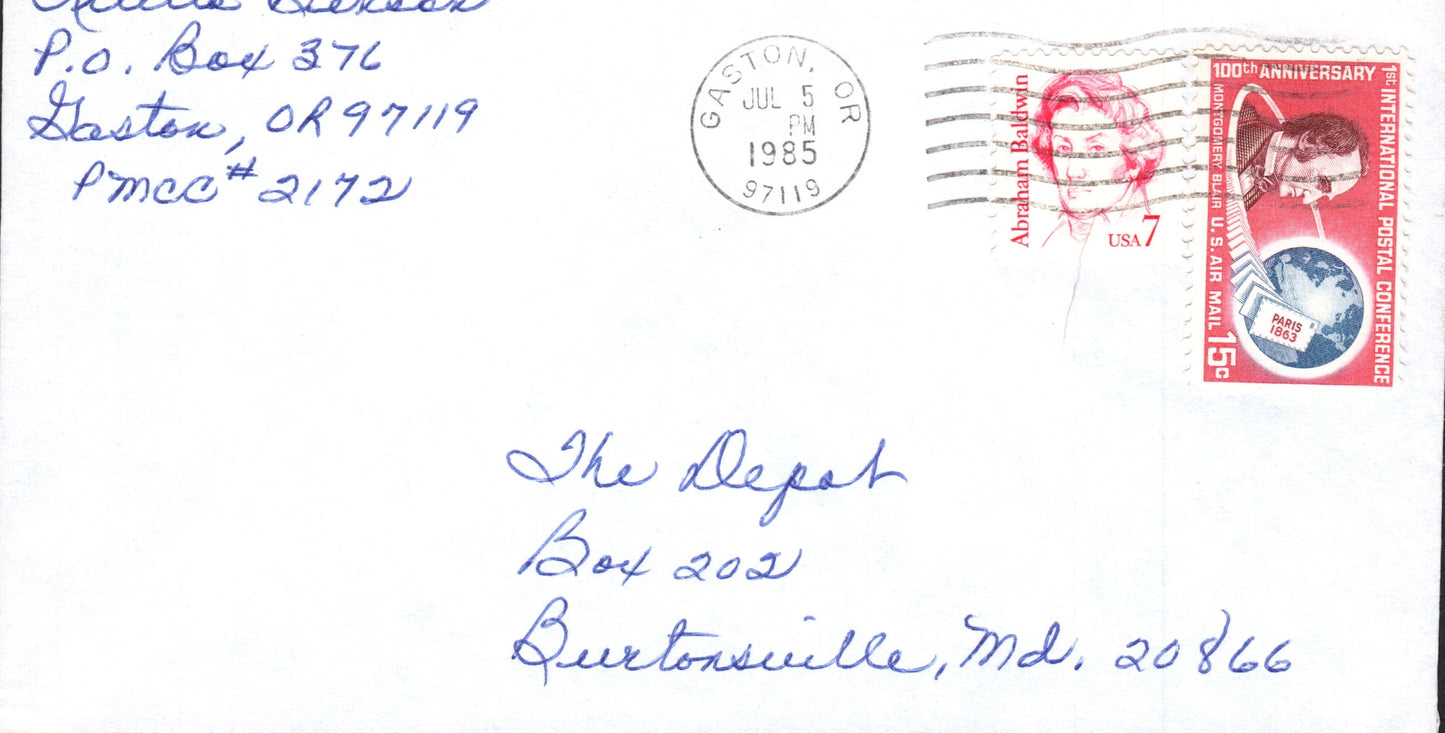 P.O. Box 376
Gaston, OR 97119
PMCC # 2172
GASTON, OR
JUL 5
PM
1985
97119
Abraham Baldwin
USA 7
100th ANNIVERSARY
1st INTERNATIONAL POSTAL CONFERENCE
MONTGOMERY BLAIR U.S. AIR MAIL 15c
PARIS
1863
The Depot
Box 202
Burtonsville, Md. 20866